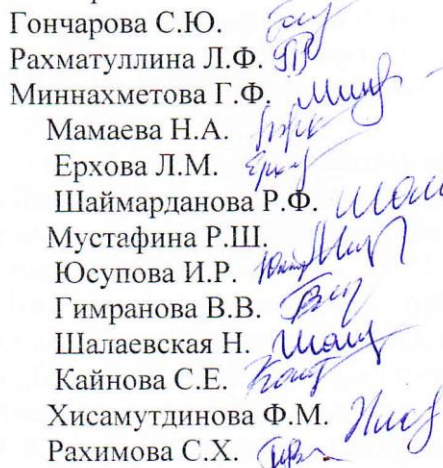 Гончарова С.Ю.
Рахматуллина Л.Ф.
Миннахметова Г.Ф.
Мамаева Н.А.
Ерхова Л.М.
Шаймарданова Р.Ф.
Мустафина Р.Ш.
Юсупова И.Р.
Гимранова В.В.
Шалаевская Н.
Кайнова С.Е.
Хисамутдинова Ф.М.
Рахимова С.Х.